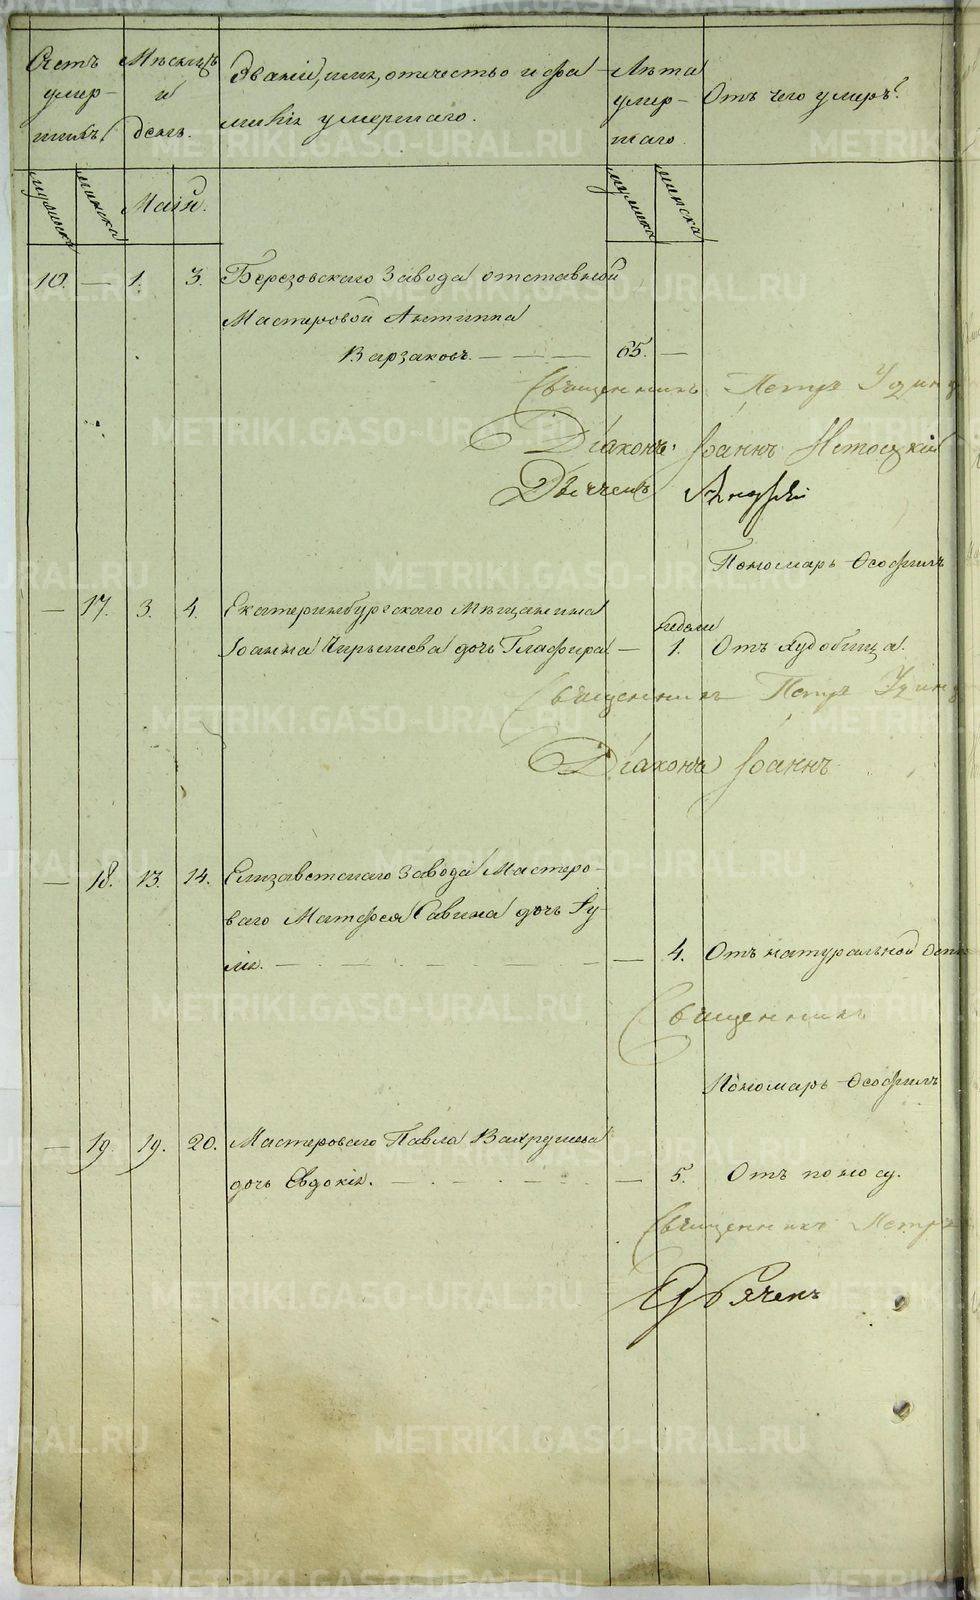 Счетъ умер-шихъ.
Мѣсяцъ и день.
Званіе, имя, отчество и фа-
милія умершаго.
Лѣта умер-шаго.
Отъ чего умеръ.
мужска женска Маій. мужска женска
10. — 1. 3. Березовскаго Завода отставной
Мастеровой Антиппа
Варзаковъ. — — — 65. —
Священникъ Петръ
Діаконъ Іоаннъ
Дьячекъ
Пономарь Ѳеофилъ
— 17. 3. 4. Екатеринбургскаго Мѣщанина
недели
Іоанна дочь Глафира — 1. Отъ худобища.
Священникъ Петръ
Діаконъ Іоаннъ
— 18. 13. 14. Елизаветскаго Завода Мастеро-
ваго Матфея Савина дочь Іу-
лія. — — — — 4. Отъ натуральной
Священникъ
Пономарь Ѳеофилъ
— 19. 19. 20. Мастероваго Павла Вахрушева
дочь Евдокія. — — — — 5. Отъ поносу.
Священникъ Петръ
Дьячекъ
METRIKI.GASO-URAL.RU